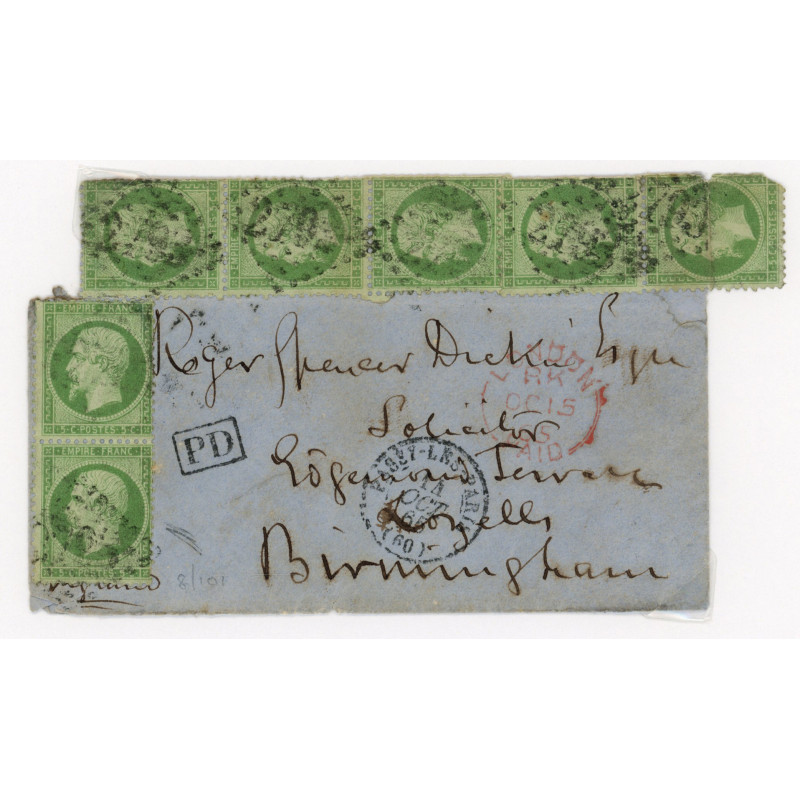 EMPIRE FRANC
5-C-POSTES-5-C
EMPIRE-FRANC
5-C-POSTES-5-C
Roger Spencer Dickin Esqre
Solicitor
Edgemond Terrace
Lozells
Birmingham
PD
LONDON
RK
OC 15
PAID
PASSY-LES-PARIS
14
OCT
(60)
8/101